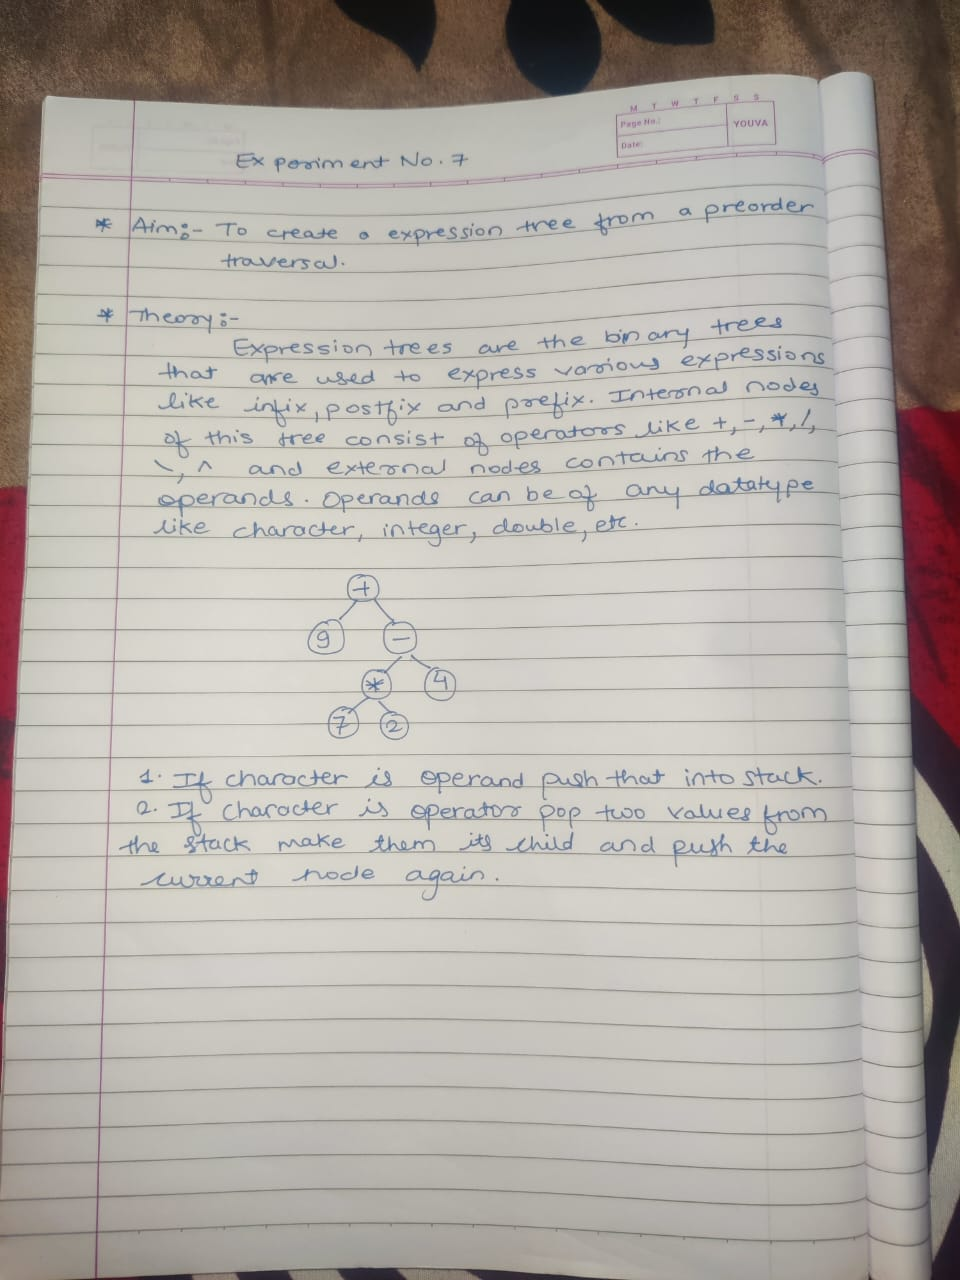 M T W T F S S
Page No.:
YOUVA
Date:
Experiment No. 7
* Aim:- To create a expression tree from a preorder
traversal.
* Theory:-
Expression trees are the binary trees
that are used to express various expressions
like infix, postfix and prefix. Internal nodes
of this tree consist of operators like +, -, *, /,
\, ^ and external nodes contains the
operands. Operands can be of any datatype
like character, integer, double, etc.
+
9 -
* 4
7 2
1. If character is operand push that into stack.
2. If character is operator pop two values from
the stack make them its child and push the
current node again.